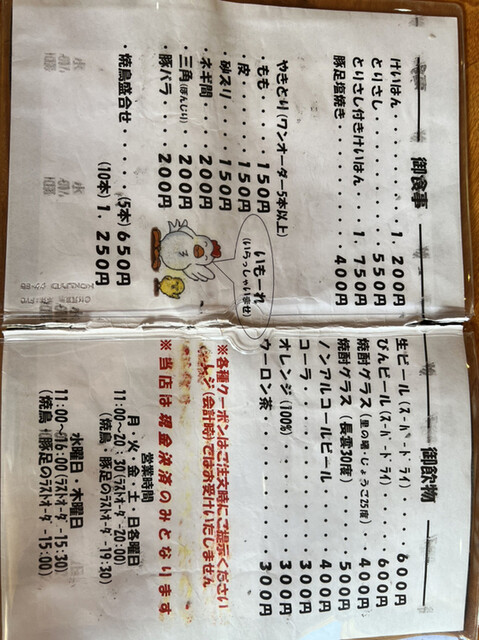 御食事
けいはん・・・・・・・・・1．200円
とりさし・・・・・・・・・・・550円
とりさし付きけいはん・・1．750円
豚足塩焼き・・・・・・・・・・400円
やきとり(ワンオーダー5本以上)
・もも・・・・・150円
・皮・・・・・・150円
・砂ズリ・・・・150円
・ネギ間・・・・200円
・三角(ぼんじり)・・・200円
・豚バラ・・・・200円
・焼鳥盛合せ・・・・(5本)650円
(10本)1．250円
いもーれ
(いらっしゃいませ)
御飲物
生ビール(スーパードライ)・・・・600円
びんビール(スーパードライ)・・・600円
焼酎グラス(里の曙・じょうご25度)・400円
焼酎グラス(長雲30度)・・・・500円
ノンアルコールビール・・・・・400円
コーラ・・・・・・・・・・・300円
オレンジ(100%)・・・・・・・300円
ウーロン茶・・・・・・・・・・300円
※各種クーポンはご注文時にご提示ください
(会計時)ではお受けいたしません
※当店は現金決済のみとなります
営業時間
月・火・金・土・日各曜日
11:00～20:30(ラストオーダー20:00)
(焼鳥・豚足のラストオーダー・19:30)
水曜日・木曜日
11:00～16:00(ラストオーダー・15:30)
(焼鳥・豚足のラストオーダー・15:00)